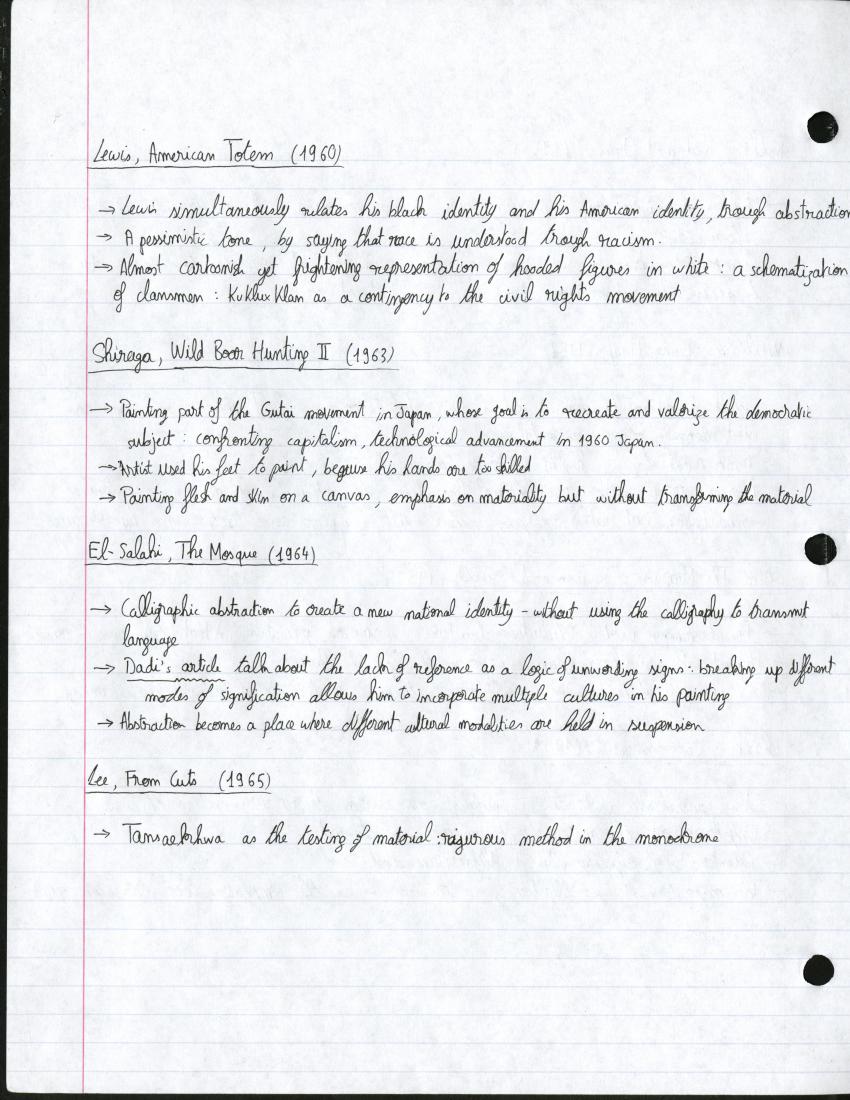 Lewis, American Totem (1960)
→ Lewis simultaneously relates his black identity and his American identity, trough abstraction
→ A pessimistic tone, by saying that race is understood trough racism.
→ Almost cartoonish yet frightening representation of hooded figures in white : a schematization
of clansmen : Ku Klux Klan as a contingency to the civil rights movement
Shiraga, Wild Boar Hunting II (1963)
→ Painting part of the Gutai movement in Japan, whose goal is to recreate and valorize the democratic
subject : confronting capitalism, technological advancement in 1960 Japan.
→ Artist used his feet to paint, because his hands are too skilled
→ Painting flesh and skin on a canvas, emphasis on materiality but without transforming the material
El-Salahi, The Mosque (1964)
→ Calligraphic abstraction to create a new national identity - without using the calligraphy to transmit
language
→ Dadi's article talk about the lack of reference as a logic of unwording signs : breaking up different
modes of signification allows him to incorporate multiple cultures in his painting
→ Abstraction becomes a place where different cultural modalities are held in suspension
Lee, From Cuts (1965)
→ Tansaekhwa as the testing of material : rigurous method in the monochrome